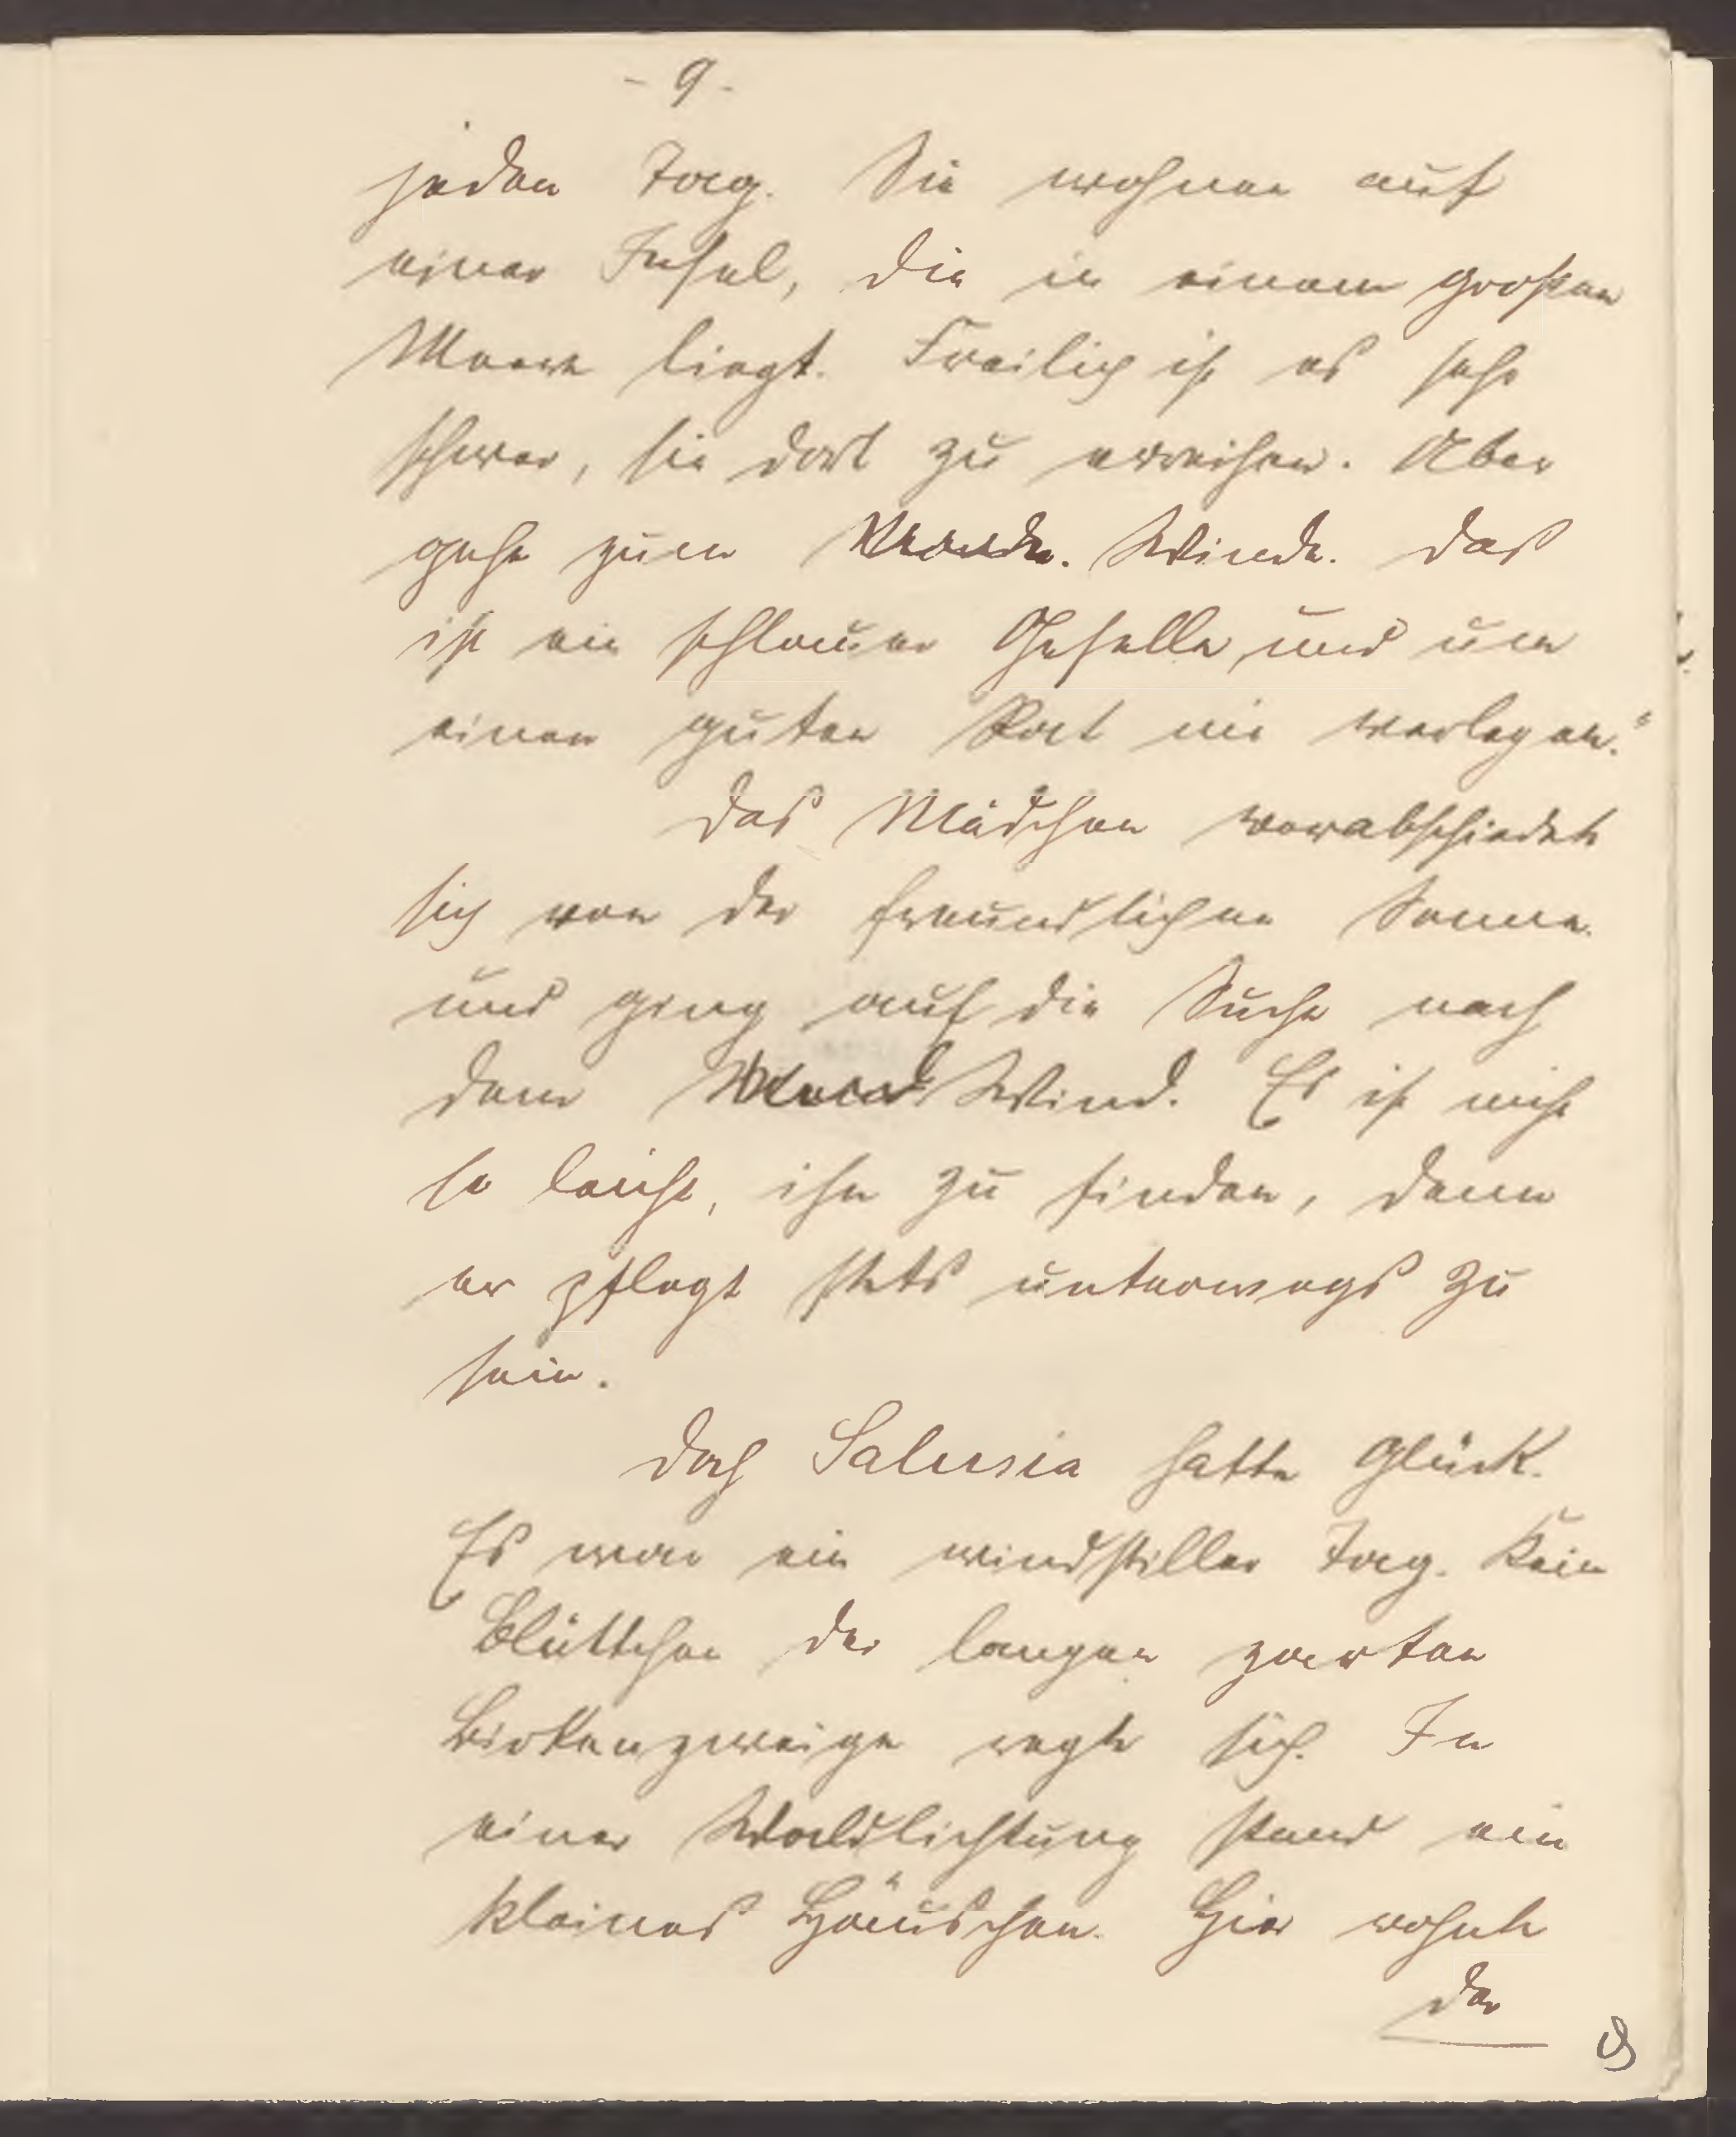 - 9 -
jeden Tag. Sie wohnen auf
einer Insel, die in einem großen
Meere liegt. Freilich ist es sehr
schwer, sie dort zu erreichen. Aber
gehe zum Monde. Winde. Das
ist ein schlauer Geselle, und um
einen guten Rat nie verlegen."
Das Mädchen verabschiedete
sich von der freundlichen Sonne
und ging auf die Suche nach
dem Mond Wind. Es ist nicht
so leicht, ihn zu finden, denn
er pflegt stets unterwegs zu
sein.
Doch Salusia hatte Glück.
Es war ein windstiller Tag. Kein
Blättchen der langen zarten
Birkenzweige regte sich. In
einer Waldlichtung stand ein
kleines Häuschen. Hier wohnte
der
9